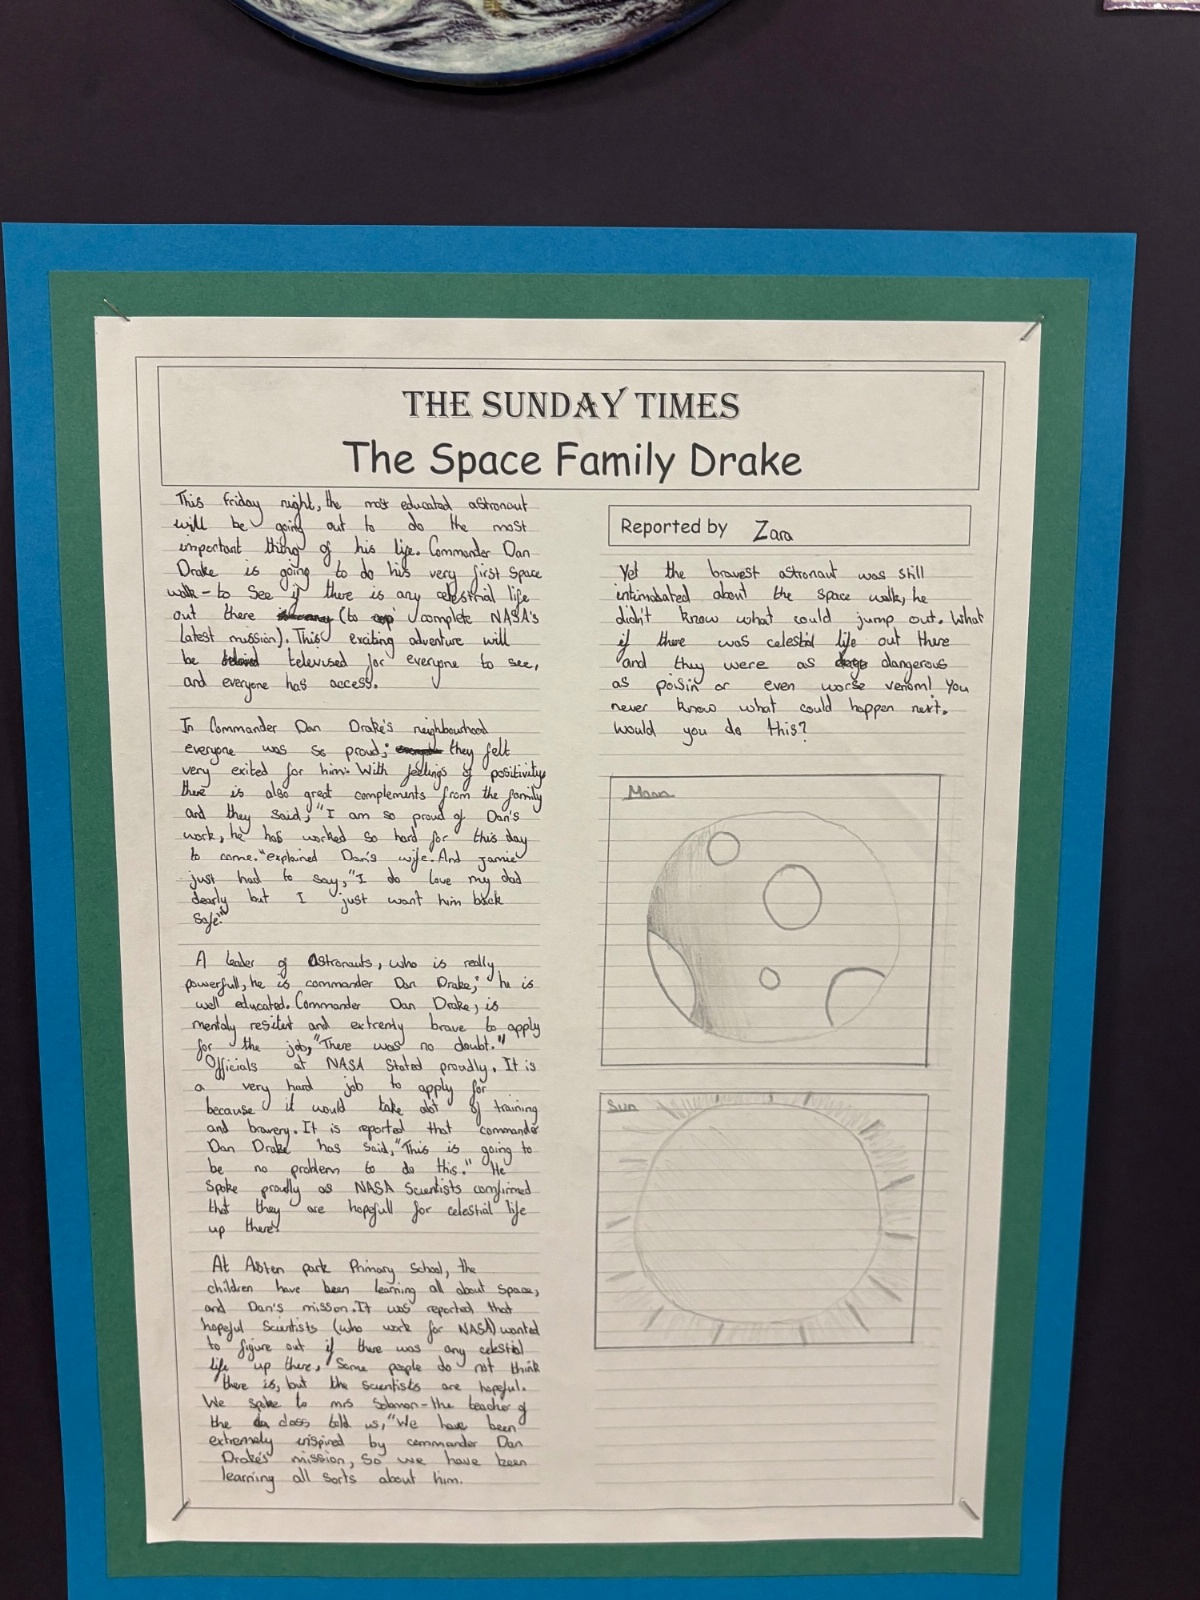 THE SUNDAY TIMES
The Space Family Drake
This friday night, the most educated astronaut
will be going out to do the most
important thing of his life. Commander Dan
Drake is going to do his very first space
walk - to see if there is any celestrial life
out there (to complete NASA's
latest mission). This exciting adventure will
be televised for everyone to see,
and everyone has access.
In Commander Dan Drake's neighbourhood
everyone was so proud; they felt
very exited for him. With feelings of positivity
there is also great complements from the family
and they said; "I am so proud of Dan's
work, he has worked so hard for this day
to come." explained Dan's wife. And Jamie
just had to say, "I do love my dad
dearly but I just want him back
safe."
A leader of Astronauts, who is really
powerfull, he is commander Dan Drake; he is
well educated. Commander Dan Drake, is
mentaly and extremly brave to apply
for the job, "There was no doubt."
Officials at NASA Stated proudly. It is
a very hard job to apply for
because it would take alot of training
and bravery. It is reported that commander
Dan Drake has said, "This is going to
be no problem to do this." He
spoke proudly as NASA Scientists comfirmed
that they are hopefull for celestial life
up there.
At park Primary School, the
children have been learning all about space,
and Dan's mission. It was reported that
hopeful Scientists (who work for NASA) wanted
to figure out if there was any celestial
life up there, Some people do not think
there is, but the scientists are hopeful.
We spoke to mrs Solomon - the teacher of
the class told us, "We have been
extremely inspired by commander Dan
Drake's mission, so we have been
learning all sorts about him.
Reported by Zara
Yet the bravest astronaut was still
intimadated about the space walk, he
didn't know what could jump out. What
if there was celestial life out there
and they were as dangerous
as poisin or even worse venom! You
never know what could happen next.
Would you do this?
Moon
Sun